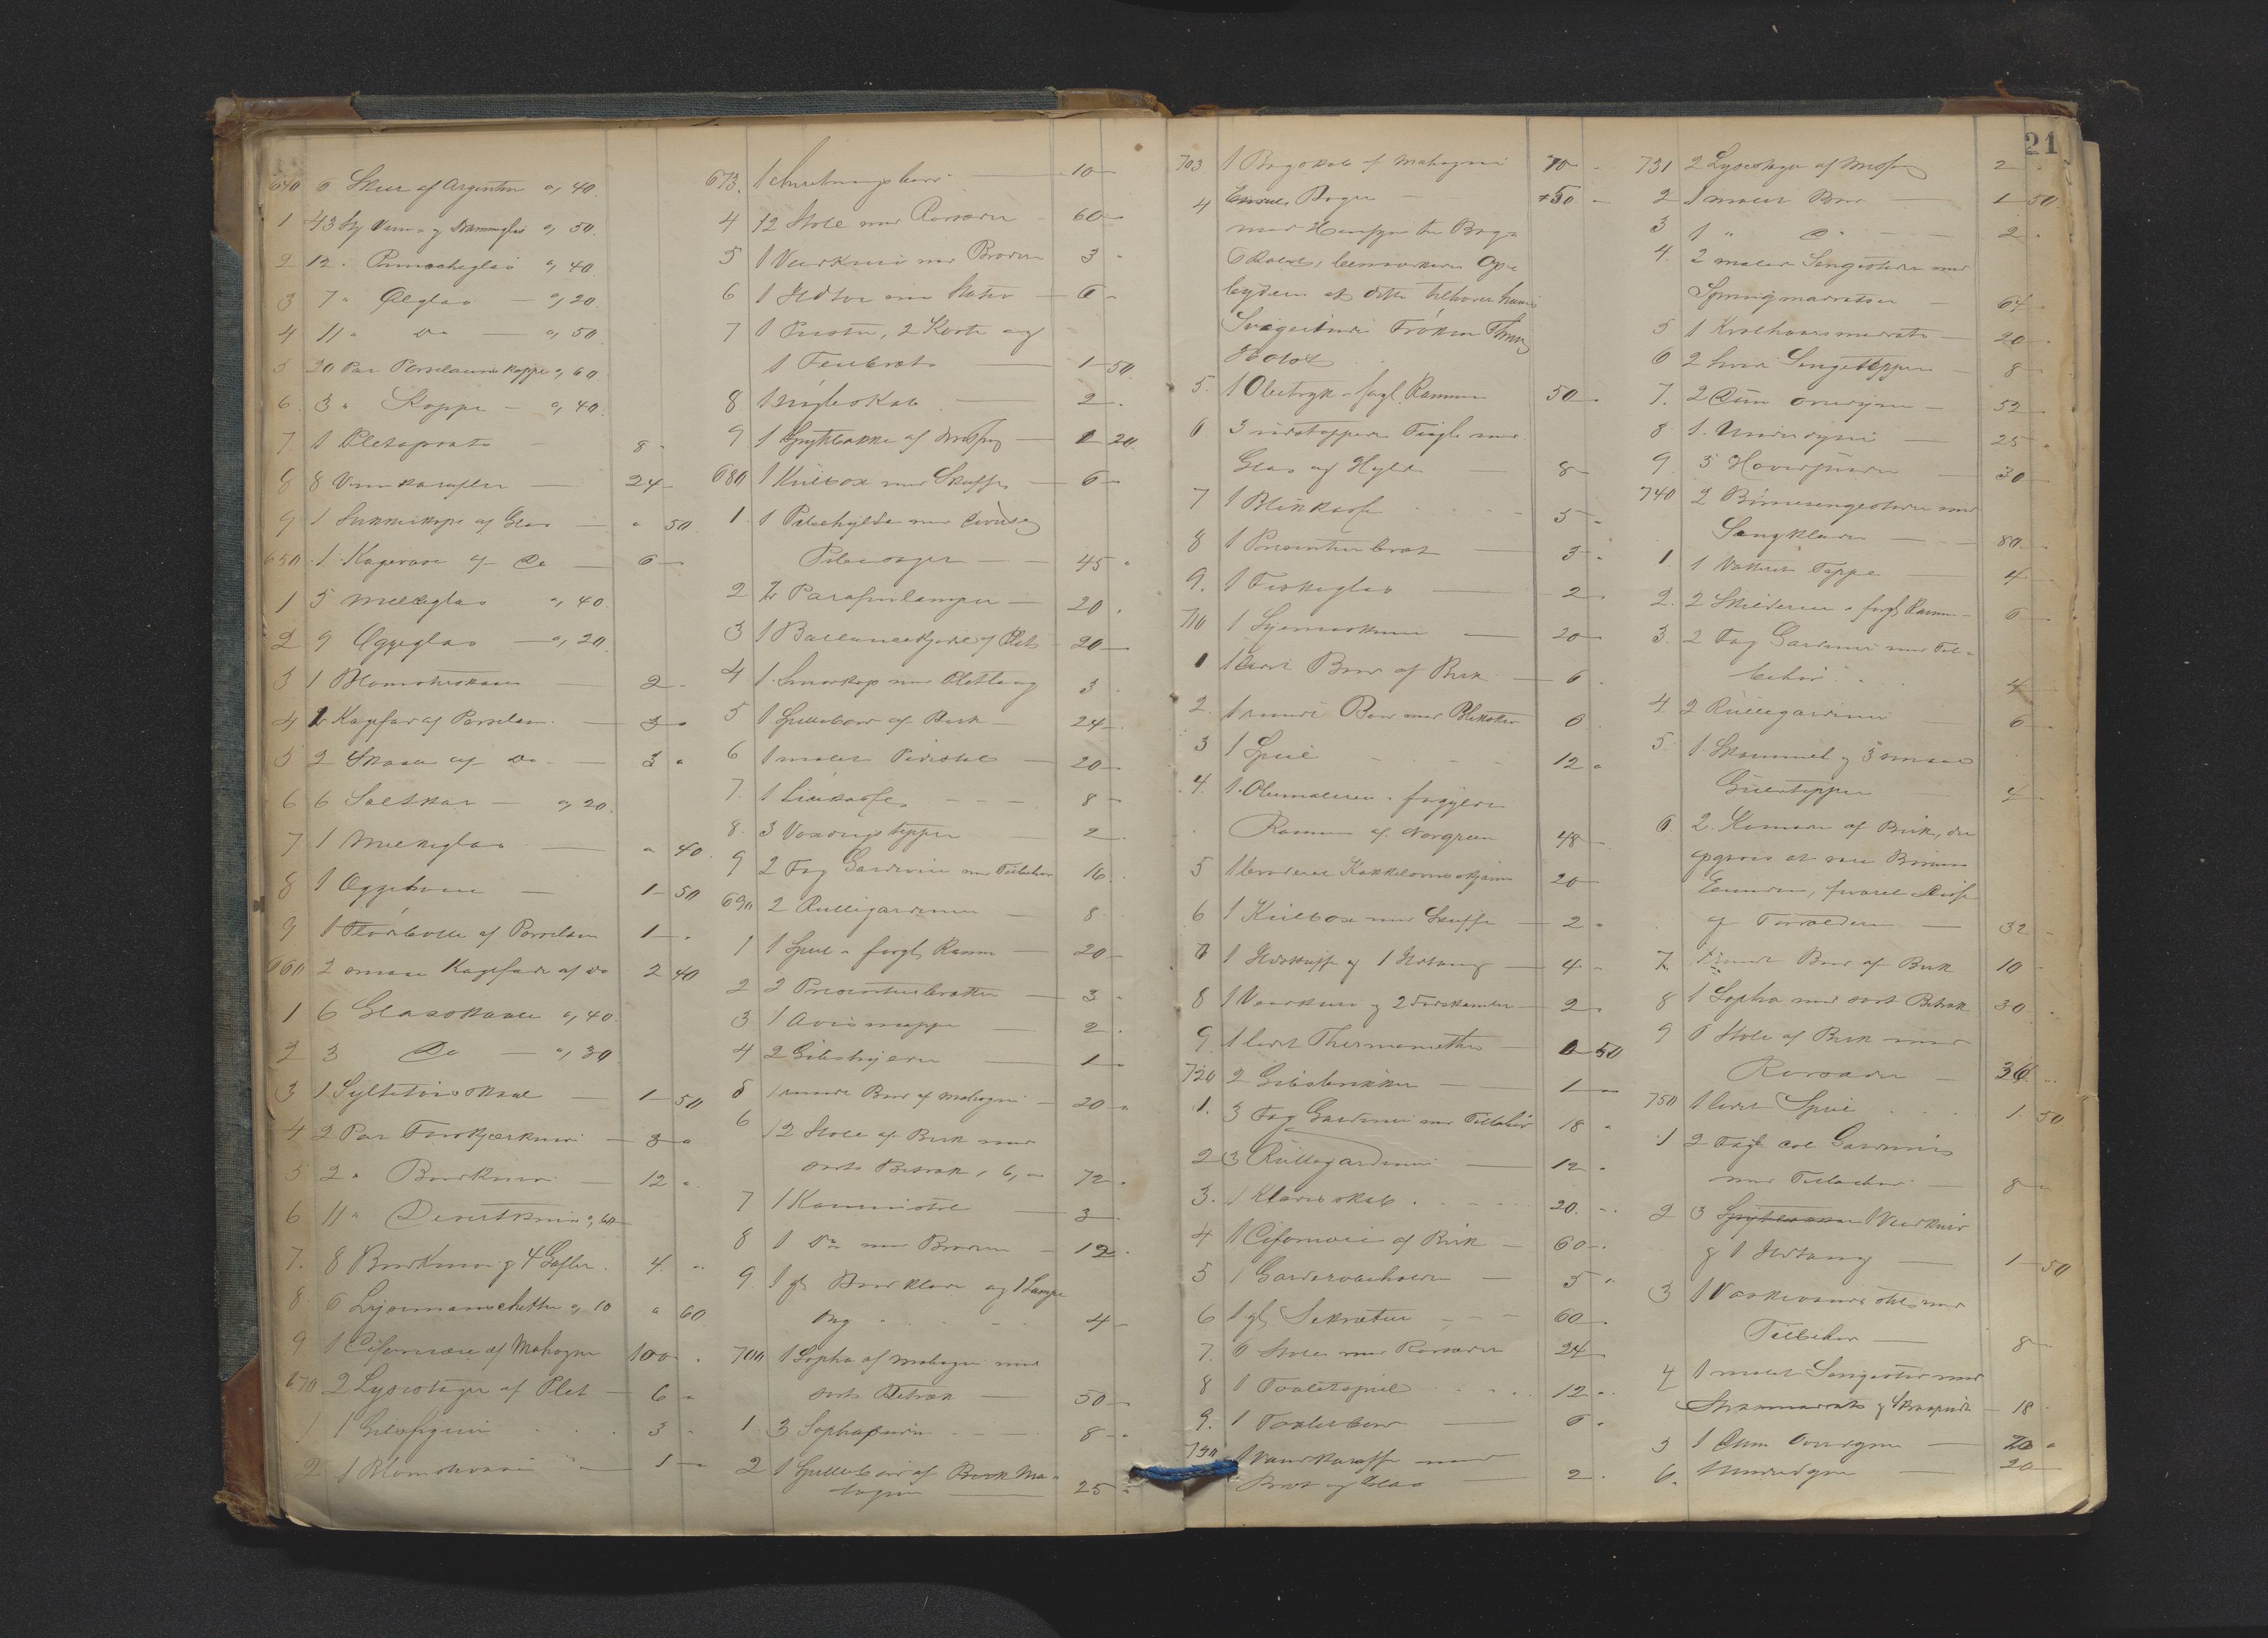 640 6 Skeer af Argentin a, 40.
1 43 Stk Viin- og Dramglas a, 50.
2 12 " Punscheglas a, 40.
3 7 " Ølglas — a, 20.
4 11 " Do — a, 50.
5 20 Par Porselainskopper a, 60
6. 3 " Kopper — a, 40.
7 1 Pletopsats — 8 "
8 8 Vinkarafler — 24 —
9 1 Sukkerkop af Glas — " 50
650 1 Kagevase af Do — 6 —
1 5 Melkeglas a, 40.
2 9 Æggeglas — a, 20.
3 1 Blomsterskaal — 2 -
4 2 Kagefad af Porselain — 3 "
5 2 Skaaler af Do — 3 "
6 6 Saltkar — a, 20.
7 1 Melkeglas — " 40.
8 1 — 1 50
9 1 Flødebolle af Porselain 1 — "
660 2 smaa Kagefade af Do 2 40
1 6 Glasskaale a, 40.
2 3 Do — a, 30.
3 1 Syltetøiskaal — 1 50
4 2 Par Forskjærkniv — 3 "
5 2 " Bordkniv — 12 "
6 11 " Desertkniv a, 60
7. 8 Bordkniv og 4 Gafler. 4. "
8. 6 Lysemanschetter a, 10 " 60
9 1 Cifoniere af Mahogni 100 "
670 2 Lysestager af Plet — 6 "
1 1 3 "
2 1 Blomstervase — 1 —
673. 1 Anretningsbord — 10 —
4 12 Stole med Rørsæder — 60 —
5 1 Veirkniv med Broderi 3 "
6 1 Ildtor med Stativ — 6 "
7 1 Puster, 2 Koste og
1 Feiebret — 1 50.
8 1 Nøgleskab — 2 .
9 1 Spytbakke af Messing — 1 20.
680 1 Kulbox med Skuffe — 6 —
1. 1 Pibehylde med diverse
Pibesager — 45 "
2 2 Parafinlamper — 20 .
3 1 Ballancekjedel af Plet 20 —
4. 1 Smørkop med Pletlaag 3 .
5 1 Spillebord af Birk — 24 —
6 1 malet Pidestal — 20 —
7. 1 — 8 —
8. 3 Voxdugstepper — 2 .
9 2 Fag Gardiner med Tilbehør 16 .
690 2 Rullegardiner — 8
1 1 Speil i forgl. Ramme — 20 —
2 2 Presenteerbretter — 3 "
3 1 Avismappe — 2 .
4 2 — 1 —
5 1 rundt Bord af Mahogni — 20 "
6 12 Stole af Birk med
sort Betræk, 6, " 72 .
7 1 3 .
8 1 Do med Broderi — 12 .
9. 1 gl Bordklæde og 1 Lampe
4 —
700 1 Sopha af Mahogni med
sort Betræk — 50 —
1 3 Sophapuder — 8 — "
2 1 Spillebord af Birk Ma-
hogni — 25 "
21
703 1 Bogskab af Mahogni 70 —
4 Endel Bøger — 50 —
med Hensyn til Bog-
skabet, bemærkes Op-
byderen at dette tilhører hans
Svigerinde Frøken
Holst
5. 1 Olietryk i forgl. Ramme 50 .
6 3 udstoppede Fugle med
Glas og Hylde — 8 —
7 1 5 "
8 1 Presenteerbret — 3 "
9. 1 Fiskeglas — 2 "
710 1 Symaskine — 20 —
1 1 lidet Bord af Birk — 6 .
2. 1 rundt Bord med 6 .
3 1 Speil — 12 "
4. 1 Oliemaleri i forgyldt
Ramme af Norgreen 48 —
5 1 broderet Kakkelovnsskjærm 20 —
6 1 Kulbox med Skuffe — 2 "
7 1 Ildskuffe og 1 Ildtang — 4 —
8 1 Veirkniv og 2 — 2 "
9 1 lidet Thermometer — 0 50
720 2 — 1 —
1. 3 Fag Gardiner med Tilbehør 18 "
2 3 Rullegardiner — 12 "
3. 1 Klædeskab . . . 20. "
4 1 Cifoniere af Birk — 60 "
5 1 Garderobeholder — 5 "
6 1 gl Sekretær — 60 —
7. 6 Stole med Rørsæder 24 —
8 1 Toiletspeil . . . 12 "
9. 1 Toiletbord — 6 "
730 1 Vandkaraffe med
Bret og Glas — 2 .
731 2 Lysestager af Messing 2 "
2 1 malet Bord — 1 50
3 1 " Do — 2 .
4. 2 malede Sengesteder med
Springmadratser — 64 .
5 1 Krølhaarsmadrats — 20 .
6 2 hvide Sengetepper — 8 —
7. 2 Dun Overdyner — 52 —
8. 1. Underdyne — 25 "
9. 5 Hovedpuder — 30 —
740 2 Børnesengesteder med
Sengklæder — 80 —
1. 1 Vatteret Teppe — 4 —
2. 2 Skilderier i forgl. Ramme — 6 —
3. 2 Fag Gardiner med Til-
behør . . 4 —
4. 2 Rullegardiner 6 —
5. 1 Skammel og 5 smaa
Gulvtepper — 4 —
6. 2. Komoder af Birk, der
opgives at være Børnenes
Eiendom, foræret disse
af Forældrene — 32 —
7. 1 rundt Bord af Birk 10 —
8 1 Sopha med sort Betræk 30 .
9 6 Stole af Birk med
Rørsæder — 36 "
750 1 lidet Speil . . . 1 50
1 2 Fag col Gardiner
med Tilbehør — 8 "
2 3 1 Veirkniv
og 1 Ildtang — 1 50
3 1 Vaskevandsstel med
Tilbehør — 8 —
4 1 malet Sengested med
Straamadrats og Skraapude — 18.
5 1 Dun Overdyne — 20 "
6. Underdyne — 20 —